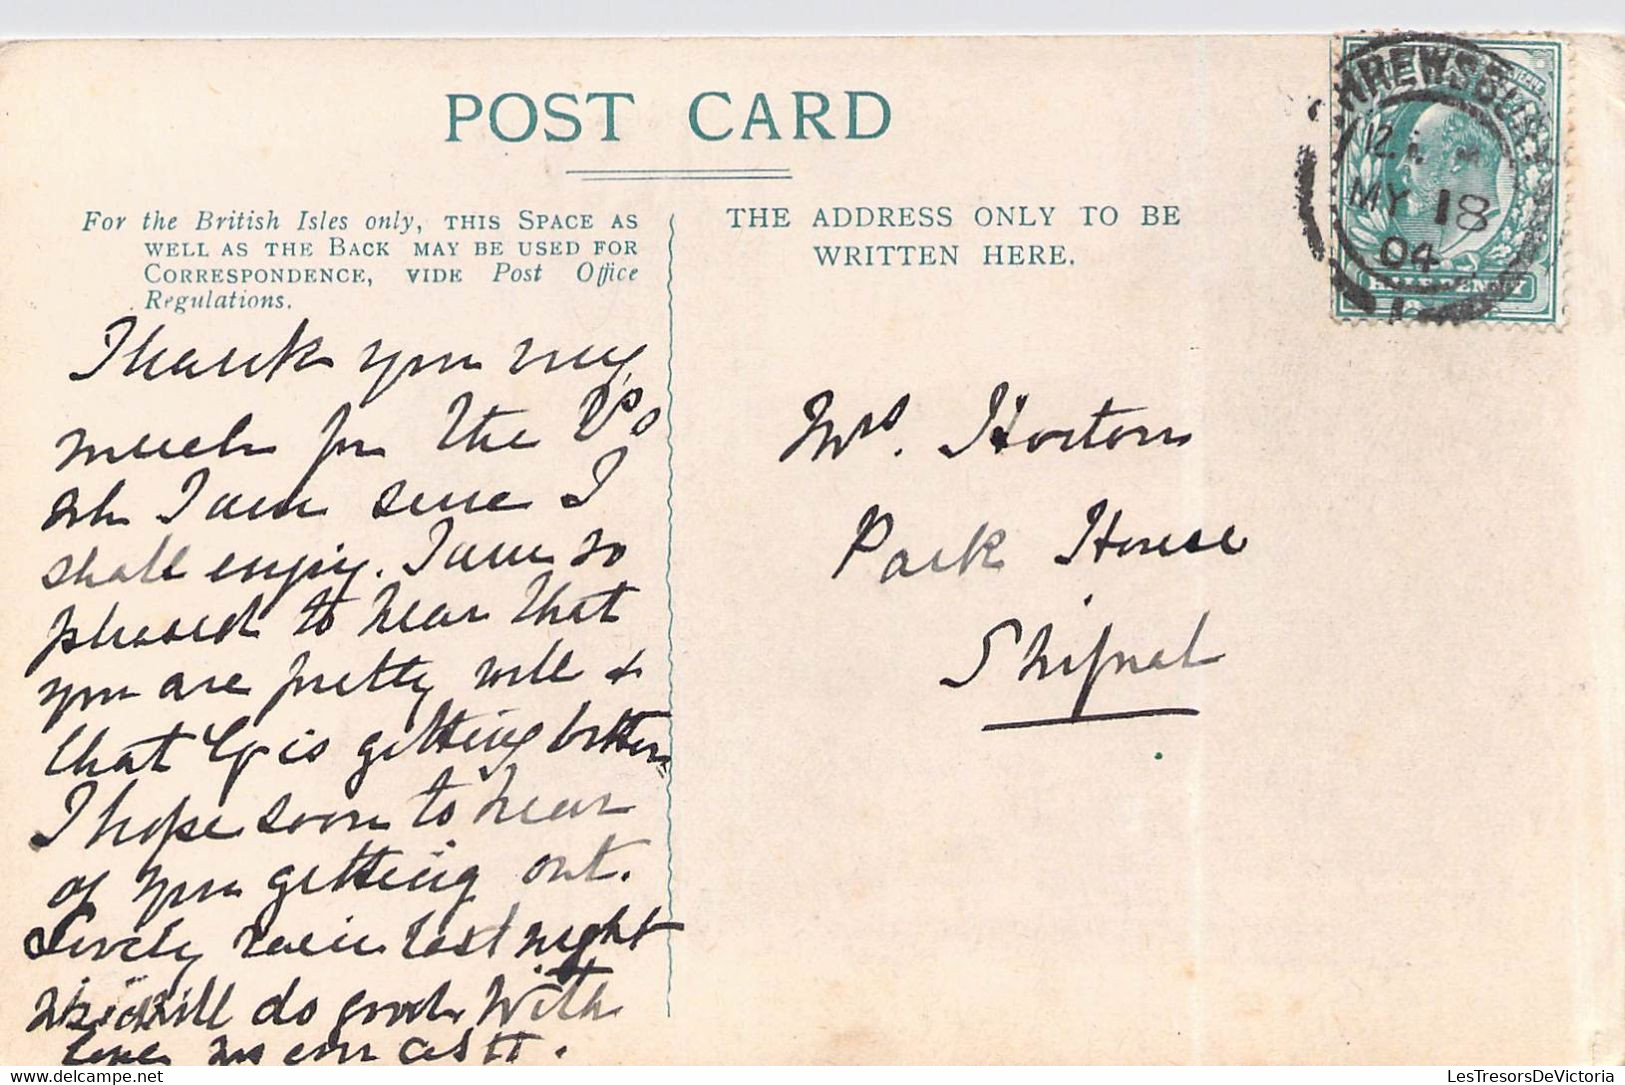 POST CARD
For the British Isles only, THIS SPACE AS
WELL AS THE BACK MAY BE USED FOR
CORRESPONDENCE, VIDE Post Office
Regulations.
THE ADDRESS ONLY TO BE
WRITTEN HERE.
HREWSBURY
12
MY 18
04
HALFPENNY
Thank you very
much for the
I am sure I
shall enjoy. I am so
pleased to hear that
you are pretty well &
that is getting better
I hope soon to hear
of you getting out.
Lovely rain last night
will do good. With
love
Mrs. Horton
Park House
Shifnal
LesTresorsDeVictoria